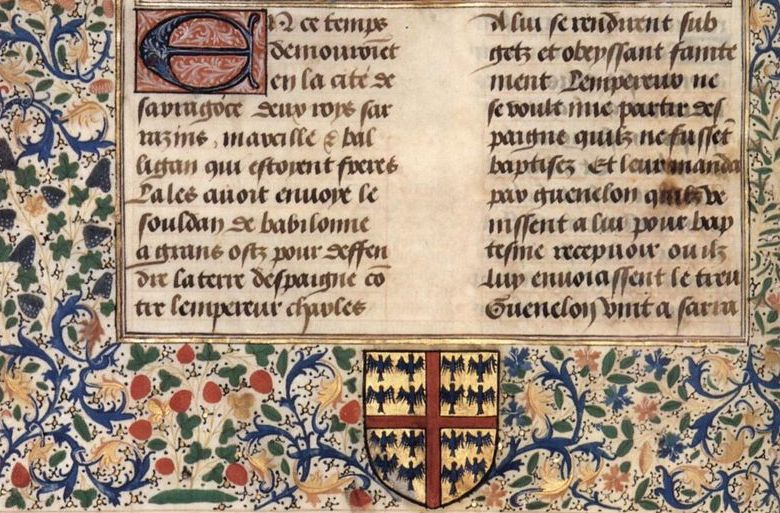 En ce temps
demouroiēt
en la cite de
sarragoce deux roys sar
razins, marcille & bal
ligan qui estoyent freres
Lales auoit enuoye le
souldan de babilonne
a grans ostz pour deffen
dre la terre despaigne cō
tre lempereur charles
A lui se rendirent sub
getz et obeyssant fainte
ment Lempereur ne
se voult mie partir des
paigne quilz ne fussēt
baptisez Et leur manda
par guenelon quilz ve
nissent a lui pour bap
tesme recepuoir ou ilz
luy enuoiassent le treu
Guenelon vint a sarra